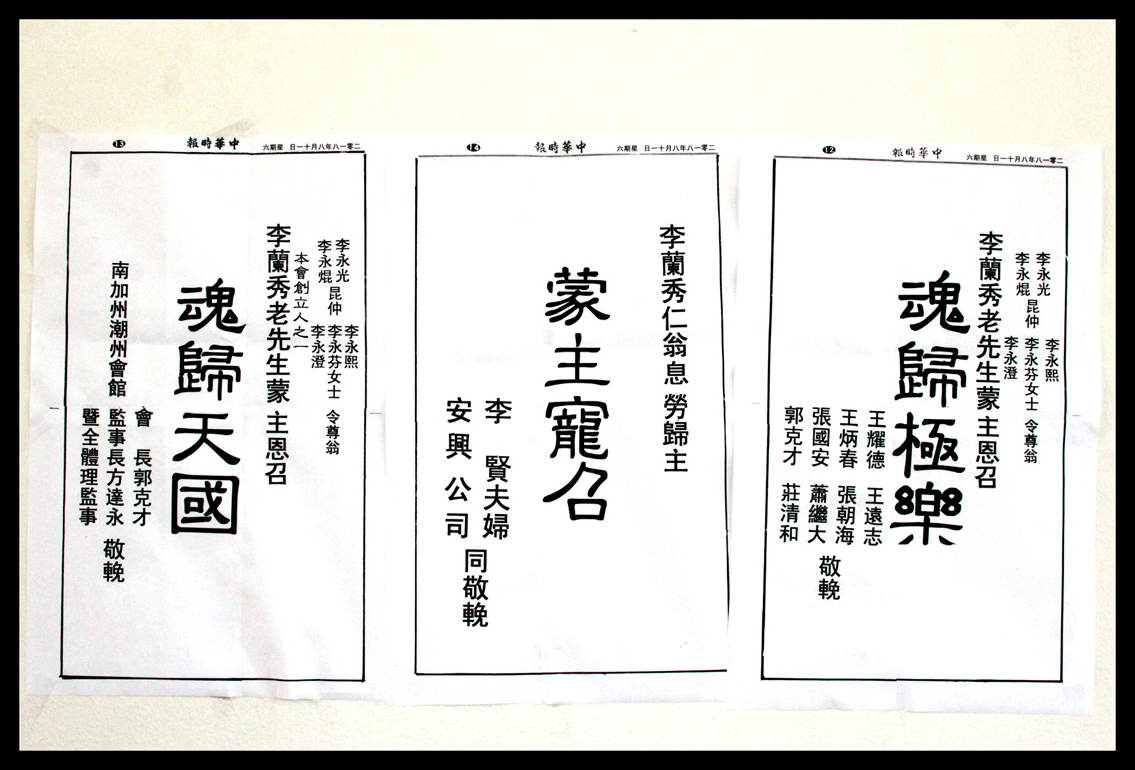 二零一八年八月十一日 星期六
中華時報
13
李永光
李永焜
昆仲
李永熙
李永芬女士
李永澄
令尊翁
本會創立人之一
李蘭秀老先生蒙 主恩召
魂歸天國
南加州潮州會館
會 長郭克才
監事長方達永
暨全體理監事
敬輓
二零一八年八月十一日 星期六
中華時報
14
李蘭秀仁翁息 勞歸主
蒙主寵召
李 賢夫婦
安興 公司
同敬輓
二零一八年八月十一日 星期六
中華時報
12
李永光
李永焜
昆仲
李永熙
李永芬女士
李永澄
令尊翁
李蘭秀老先生蒙 主恩召
魂歸極樂
王耀德 王遠志
王炳春 張朝海
張國安 蕭繼大
郭克才 莊清和
敬輓